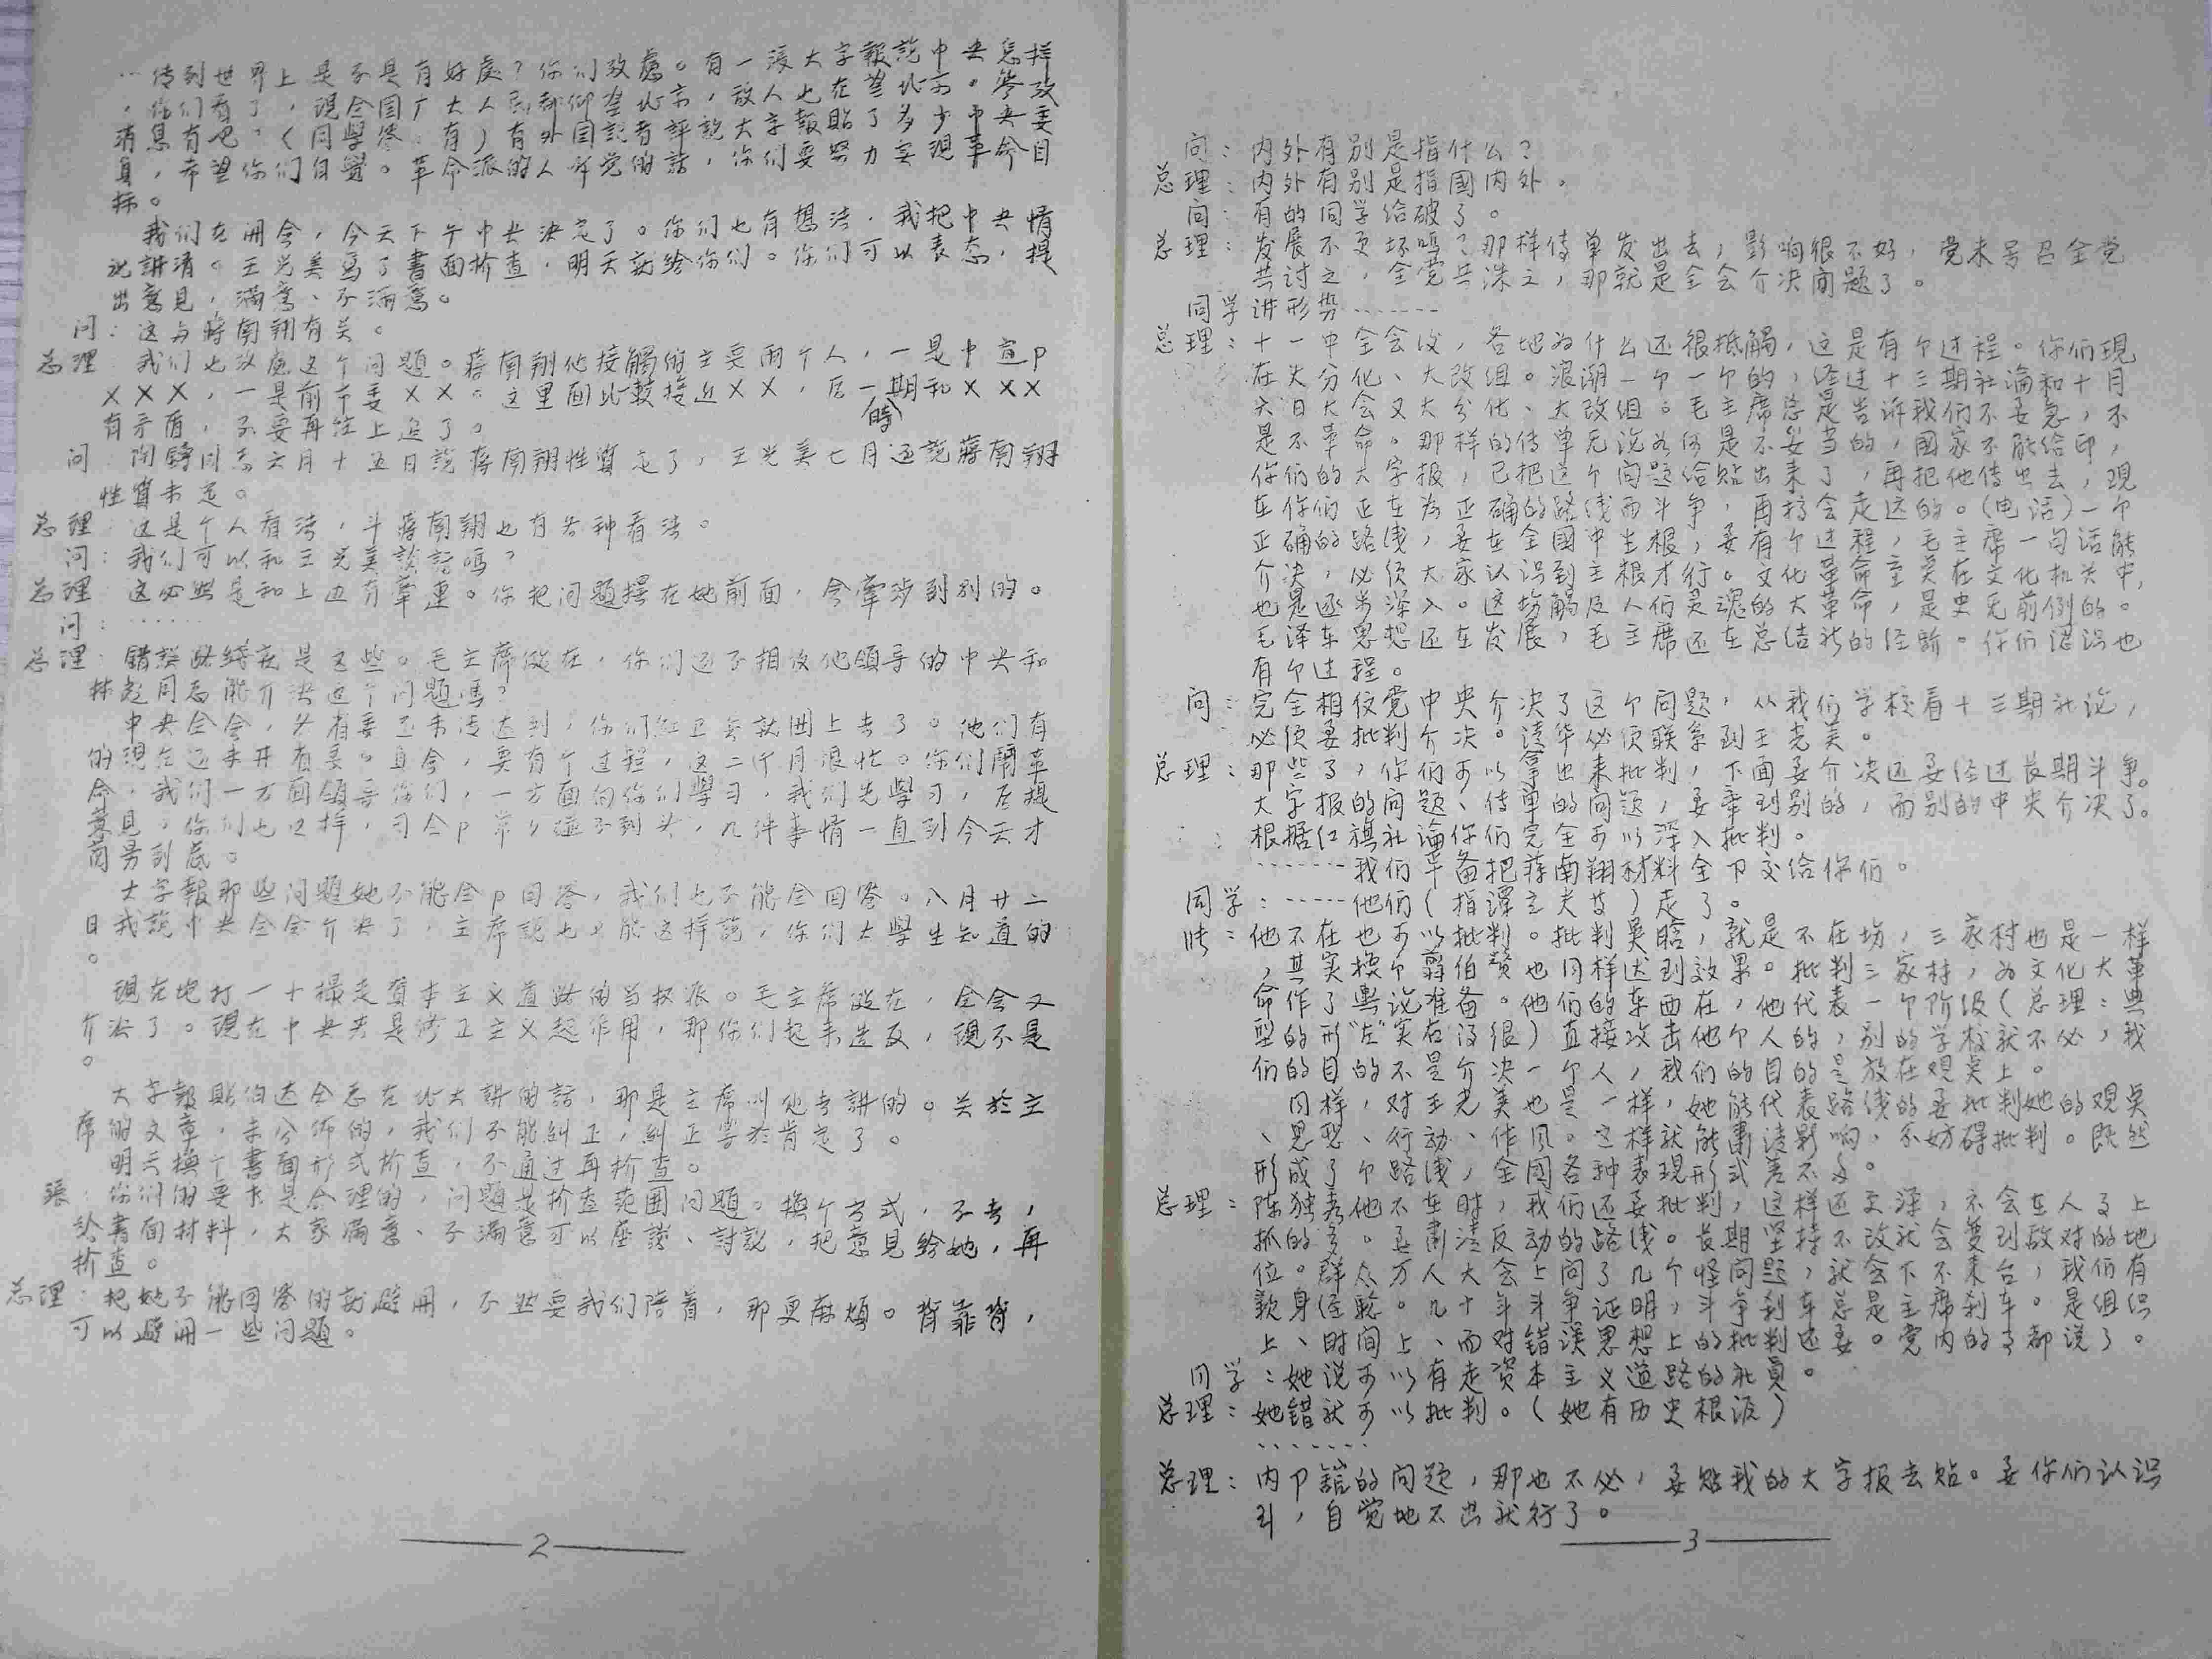 …传到世界上是不是有好處？你们攷慮。有一張大字報說中央怎样
。你们看了，現全国广大人民都仰望北京，敌人也在望北京。參攷
消息有吧？（同學答：有）有外国記者評說大字報貼了多少中央委
員，希望你们自覺。革命派的人听党的話，你们要努力实現革命目
标。
我们在開会，今天下午中央決定了。你们也有想法，我把中央情
况讲清。王光美写了書面抗查，明天就给你们。你们可以表态，提
出意見，滿意、不滿意。
问：这与蔣南翔有关。
总理：我们也攷慮这个问題。蔣南翔他接觸的主要兩个人，一是中宣P
×××，一是前市委××。这里面比較接近××，后一时期和×××
有矛盾，不要再往上追了。
问：陶鑄同志六月十五日說蔣南翔性質定了，王光美七月还說蔣南翔
性質未定。
总理：这是个人看法，斗蔣南翔也有各种看法。
问：我们可以和王光美談話嗎？
总理：这必然是和上边有牽連。你把问題摆在她前面，会牽涉到别的。
问：……
总理：錯誤路綫就是这些。毛主席健在，你们还不相信他領导的中央和
林彪同志能介决这个问題嗎？
中央全会，省委还未传达到，你们紅卫兵就围上去了。他们有
的現在还未开省委。自会，要有个过程，这二个月很忙。你们鬧革
命，我们一方面領导你们，一方面向你们學习，我们先學习，后提
意見，你们也一样，司令P常々碰不到头，几件事情一直到今天才
商易到底。
大字報那些问題她不能全P回答，我们也不能全回答。八月廿二
日我說中央全会介决了，主席說也只能这样說，你们大學生知道的
。
現在地打一十撮走資本主义道路的当权派。毛主席健在，全会又
介决了。現在中央若是修正主义起作用，那你们起来造反，現不是
。
大字報貼伯达仝志在北大讲的話，那是主席叫他去讲的。关於主
席的文章，未公佈的，我们不能糾正，糾正等於肯定了。
明天換个書面形式抗查，不通过再抗查。
張：你们的要求是合理的，问題是抗查范围问題。換个方式，不去，
给書面材料，大家滿意、不滿意可以座談、討論，把意見给她，再
抗查。
总理：把她不能回答的就避開，不然要我们陪着，那更麻煩。背靠背，
可以避開一些问題。
2
问：内外有别是指什么？
总理：内外有别是指國内外。
问：有的同学给破了。
总理：发展不更坏嗎？那样传单发出去，影响很不好，党未号召全党
共讨之，全党共诛之，那就是全会介决问题了。
同学讲形势………
总理：十一中全会议，各地为什么还很抵觸，这是有个过程。你们現
在大分化、大改组。浪潮一个一个的，经过十三期社論和十月
六日大会又大分化、大改组。毛主席总是告诉我们不要急，不
是不革命。那样的传单无论如何是不妥当的，國家不能给印，
你们的大字报，已把这个问题给贴出来了，再把他传出去，現
在你们正在为正确的路线而斗争，再搞会走远的。（电话）一个
正确的路线，要在全國中生根，要有个过程，毛主席一句话能
介决，必须大家认识到主根才行。文化革命主要在文化机关中，
也是逐步深入。这场觸及人们灵魂的大革命，是史无前例的。
毛泽东思想还在发展，毛主席还在总结新的经驗。你们认识也
有个过程。
问：完全相信党中央介决了这个问题，从我们学校看十三期社论，
必须要批判介决。清华必须联系到王光美。
总理：那些了，你们可以拿出来批判，下面要介决还要经过长期斗争。
大字报的问题、传单的问题，要牵到别的，而别的中央介决了。
根据红旗社論你们完全可以深入批判。
………我们準备把蒋南翔材料全卩交给你们。
同学：……他们（指譚立夫等）走了。
陈：他不在也可以批判。批判吴晗，就是不在场，三家村也是一样
，其实换个翦伯赞也同样达到效果。批判三家村，为文化大革
命作了輿论准备。他们的东西在，他代表一个阶级（总理：典
型的形“左”实右没很）直接攻击他个人的，别的学校就不必，我
们的目的不是介决一个人，我们的目的是放在观奌上。
同样，对王光美也是一样，她能代表路线的要批判她的观奌
、思想、行动、作风。这样就能肃清影响。不妨碍批判。既然
形成了个路线，全國各种表現形式差不多。
总理：陈独秀他不在时，我们还要批判，这样还更深，不会在人身上
抓的多。要肃清反动的路线。长期坚持不改就会受到敌对的地
位。群众万人大会上问了几个怪问题，就会下不来台，我们有
款身经驗。几十年斗争证明，斗争刹车总是主席刹车。是组织
上、时间上、而对错误思想上的批判还要。党内的了都说了。
同学：她说可以有走资本主义道路的社員。
总理：她错就可以批判。（她有历史根源）
………
总理：内卩舘的问题，那也不必，要贴我的大字报去贴。要你们认识
到，自觉地不出就行了。
3